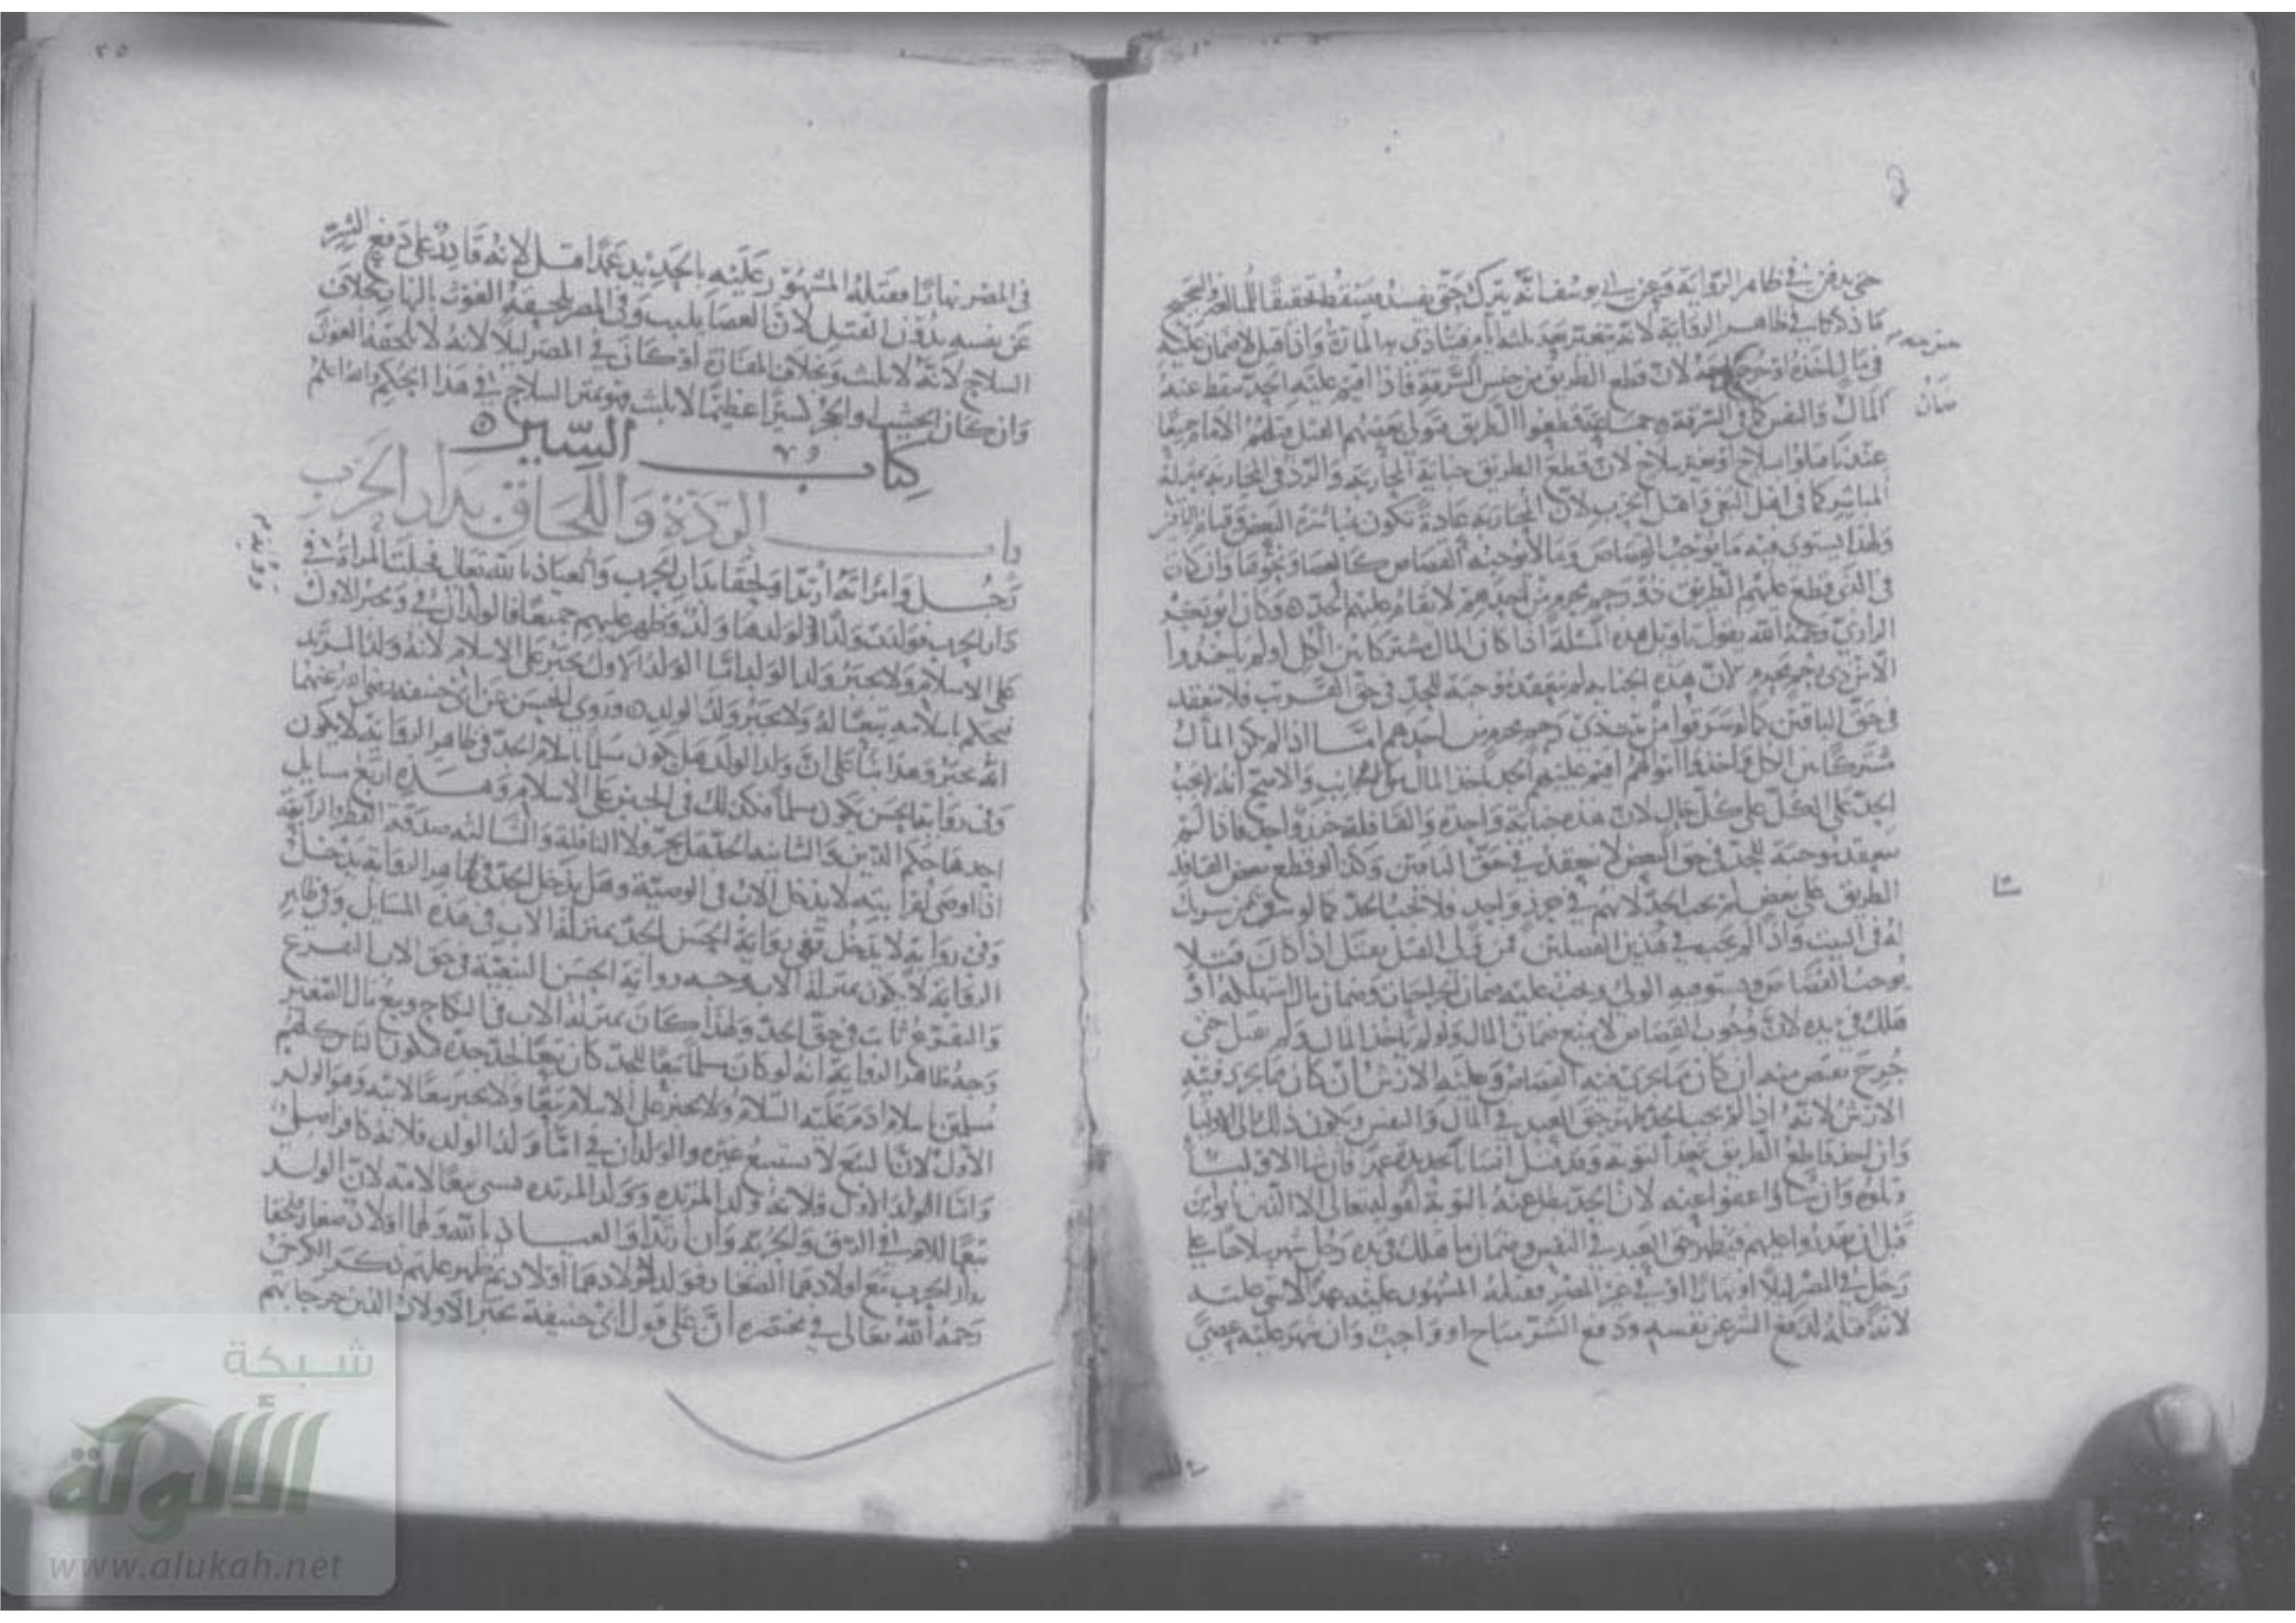 حتى يدفن في ظاهر الرواية وعن ابي يوسف انه يترك حتى يفسد فيسقط تحقيقا للمبالغة والصحيح
ما ذكرنا في ظاهر الرواية لانه يتغير بعد ثلثة ايام فيتاذى به المارة واذا قتل لا ضمان عليه
في مال اخذه او لان قطع الطريق من جنس السرقة فاذا اقيم عليه الحد سقط عنه
المال والنفس كما في السرقة جماعة قطعوا الطريق فتولى بعضهم القتل قتلهم الامام جميعا
عندنا قتلوا بسلاح او بغير سلاح لان قطع الطريق جناية المحاربة والردء في المحاربة بمنزلة
المباشر كما في اهل البغي واهل الحرب لان المحاربة عادة تكون بمباشرة البعض وقيام الباقين
ولهذا يستوي فيه ما يوجب القصاص وما لا يوجبه القصاص كالعصا ونحوها وان كان
في الذي قطع عليهم الطريق ذو رحم محرم من احدهم لا يقام عليهم الحد وكان ابو بكر
الرازي رحمه الله يقول تاويل هذه المسئلة اذا كان المال مشتركا بين الكل او لم ياخذوا
الا من ذي رحم محرم لان هذه الجناية لم تنعقد موجبة للحد في حق القريب فلا تنعقد
في حق الباقين كما لو سرقوا من ذي رحم محرم من احدهم اما اذا لم يكن المال
مشتركا بين الكل واخذوا اموالهم اقيم عليهم الحد باخذ المال من الاجانب والاصح انه لا يجب
الحد على الكل على كل حال لان هذه جناية واحدة والقافلة حرز واحد فاذا لم
ينعقد موجبة للحد في حق البعض لا تنعقد في حق الباقين وكذا لو قطع بعض القافلة
الطريق على بعض لم يجب الحد لانهم في حرز واحد فلا يجب الحد كما لو سرق من شريك
له في البيت واذا لم يجب في هذين الفصلين فمن ولى القتل يقتل اذا كان قتلا
يوجب القصاص ويستوفيه الولي ويجب عليه ضمان الجراحات وضمان مال استهلكه او
هلك في يده لان وجوب القصاص لا يمنع ضمان المال ولو لم ياخذ المال ولم يقتل حتى
جرح يقتص منه ان كان مما يجري فيه القصاص وعليه الارش ان كان مما يجري فيه
الارش لانه اذا لم يجب الحد ظهر حق العبد في المال والنفس ويكون ذلك الى الاوليا
وان اخذ قاطع الطريق بعد التوبة وقد قتل انسانا بحديدة عمدا فان شا الاوليا
قتلوه وان شاوا عفوا عنه لان الحد بطل عنه بالتوبة لقوله تعالى الا الذين تابوا من
قبل ان تقدروا عليهم فيظهر حق العبد في النفس وضمان ما هلك في يده رجل شهر سلاحا على
رجل في المصر ليلا او نهارا او في غير المصر فقتله المشهور عليه عمدا لا شي عليه
لانه قتله لدفع الشر عن نفسه ودفع الشر مباح او واجب وان شهر عليه عصى
في المصر نهارا فقتله المشهور عليه بالحديد عمدا قتل لانه قادر على دفع الشر
عن نفسه بدون القتل لان العصا يلبث وفي المصر يلحقه الغوث بالنهار بخلاف
السلاح لانه لا يلبث وبخلاف المفازة او كان في المصر ليلا لانه لا يلحقه الغوث
وان كان الخشب او الحجر كبيرا عظيما لا يلبث فهو بمنزلة السلاح في هذا الحكم والله اعلم
كتاب السير
باب الردة واللحاق بدار الحرب
رجل وامراته ارتدا ولحقا بدار الحرب والعياذ بالله تعالى فحبلت المراة في
دار الحرب فولدت ولدا ثم لولدها ولد وظهر عليهم جميعا فالولدان في ويجبر الاول
على الاسلام ولا يجبر ولد الولد اما الولد الاول يجبر على الاسلام لانه ولد المرتد
فيحكم باسلامه تبعا له ولا يجبر ولد الولد وروى الحسن عن ابي حنيفة رضي الله عنهما
انه يجبر وهذا بنا على ان ولد الولد هل يكون مسلما باسلام الجد في ظاهر الرواية لا يكون
وفي رواية الحسن يكون مسلما فكذلك في الجبر على الاسلام وهذه اربع مسايل
احدها حكم الدين والثانية الجد هل يجر ولا النافلة والثالثة صدقة الفطر والرابعة
اذا اوصى لقرابته لا يدخل الاب في الوصية وهل يدخل الجد في ظاهر الرواية يدخل
وفي رواية لا يدخل ففي رواية الحسن الجد بمنزلة الاب في هذه المسايل وفي ظاهر
الرواية لا يكون بمنزلة الاب وجه رواية الحسن التبعية في حق الاب الفرع
والفرع ثابت في حق الجد ولهذا كان بمنزلة الاب في النكاح وبيع مال الصغير
وجه ظاهر الرواية انه لو كان مسلما تبعا للجد كان تبعا لجد جده فيكون الناس كلهم
مسلمين باسلام ادم عليه السلام ولا يجبر على الاسلام تبعا ولا يجبر تبعا لابيه وهو الولد
الاول لان التبع لا يستتبع غيره والولدان في اما ولد الولد فلانه كافر اصلي
واما الولد الاول فلانه ولد المرتدة وولد المرتدة يسبى تبعا لامه لان الولد
تبعا للام في الرق والحرية وان ارتدا والعياذ بالله ولهما اولاد صغار فلحقا
بدار الحرب مع اولادهما الصغار فولد لاولادهما اولاد ثم ظهر عليهم ذكر الكرخي
رحمه الله تعالى في مختصره ان على قول ابي حنيفة يجبر الاولاد الذين خرجا بهم
شبكة
الألوكة
www.alukah.net